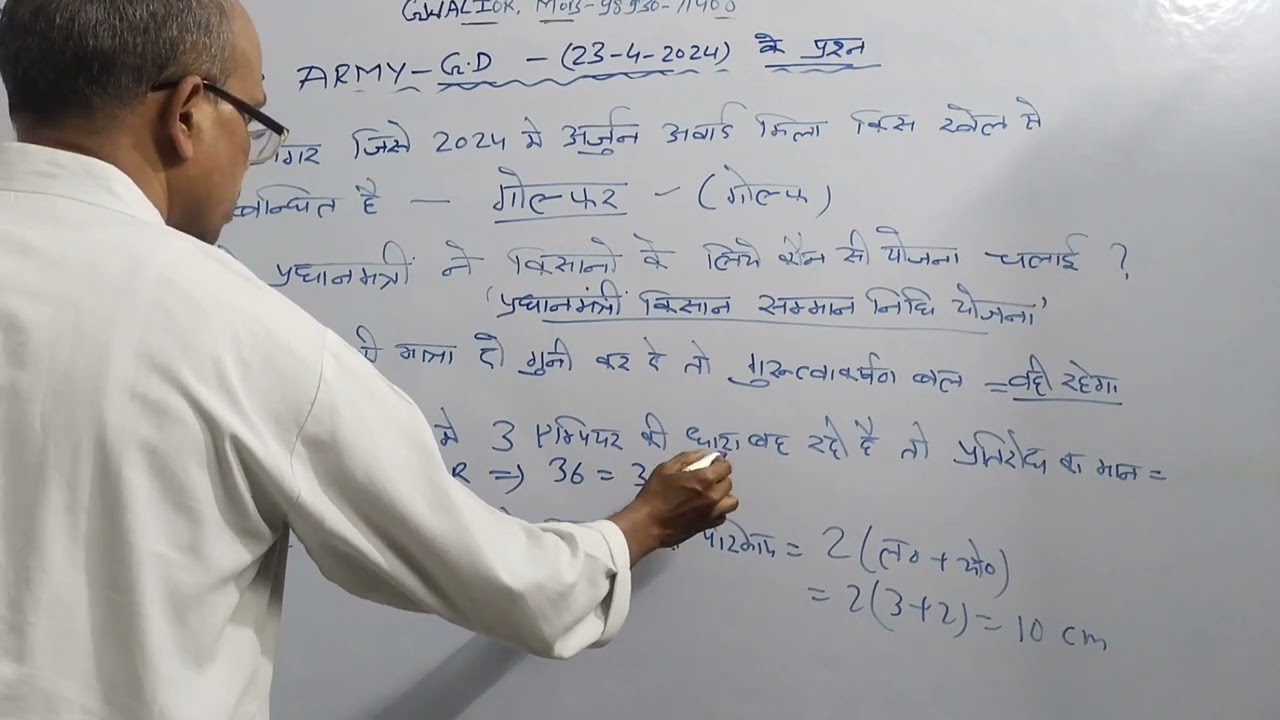 GWALIOR. Mob-98930-71408
ARMY-G.D - (23-4-2024) के प्रश्न
जिसे 2024 मे अर्जुन अवार्ड मिला किस खेल से
है - गोल्फर - (गोल्फ)
प्रधानमंत्री ने किसानो के लिये कौन सी योजना चलाई ?
'प्रधानमंत्री किसान सम्मान निधि योजना'
मात्रा दो गुनी कर दे तो गुरुत्वाकर्षण बल = वही रहेगा
मे 3 एम्पियर की धारा बह रही है तो प्रतिरोध का मान =
R => 36 = 3
= 2(ल० + चौ०)
= 2(3+2) = 10 cm